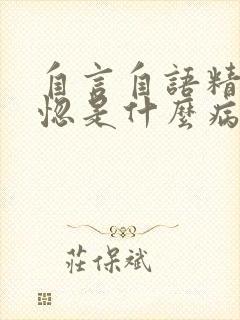 自言自語精
惚是什麼病
莊保斌